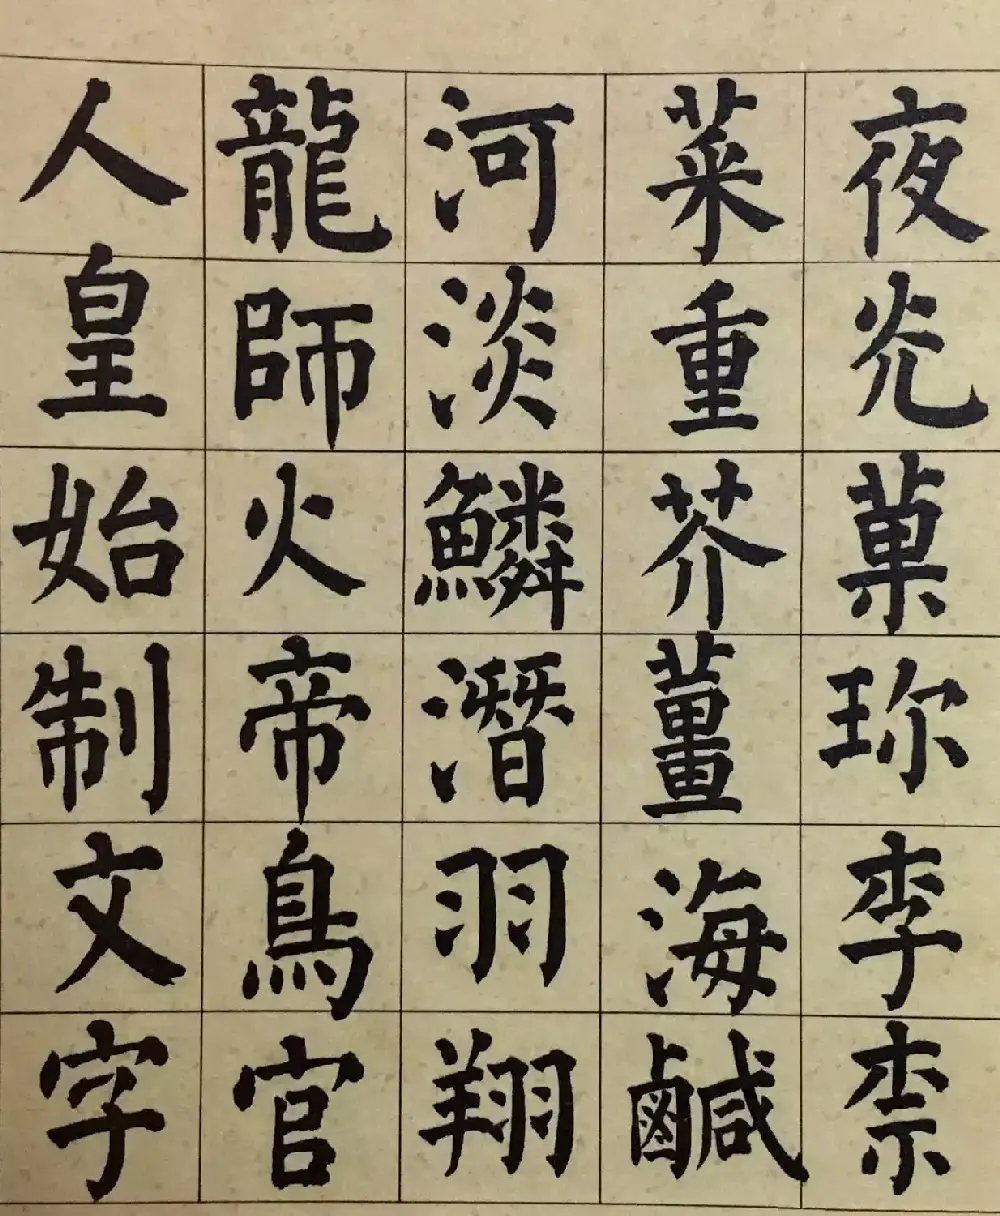 夜光菓珎李柰
菜重芥薑海鹹
河淡鱗潛羽翔
龍師火帝鳥官
人皇始制文字